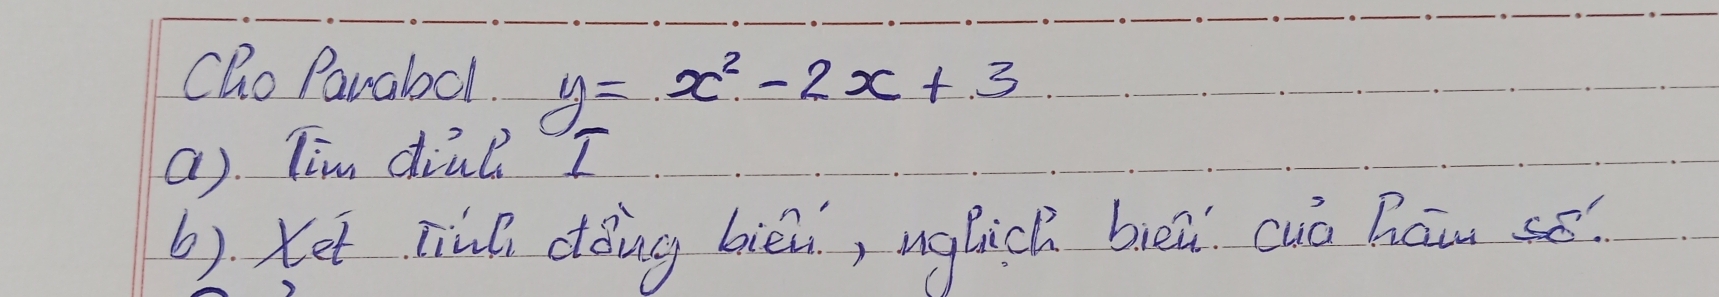 Cho Parabol y = x² - 2x + 3
a). Tìm đỉnh I
b). Xét tính đồng biến, nghịch biến của hàm số.